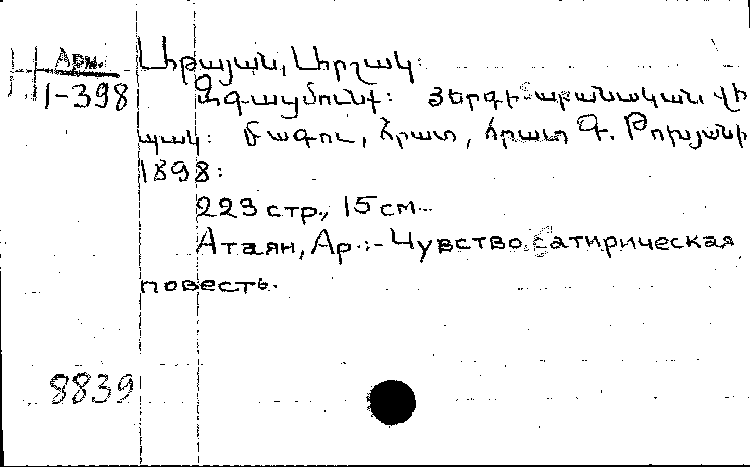 Арм.
1-398
Աթայան, Արշակ:
Զգացմունք: Յերգի-աբանական վի
պակ: Բագու, հրատ, հրատ Գ.
1898:
223 стр., 15 см.
Атаян, Ар.:- Чувство, сатирическая
повесть.
8839